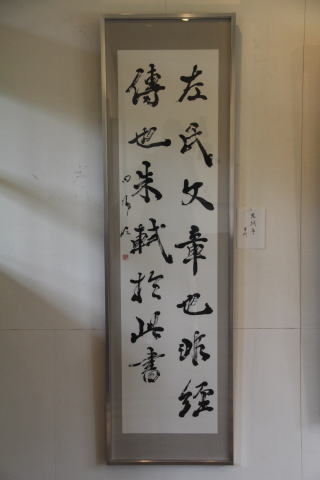 左氏文章也非經
傳也朱軾於此書